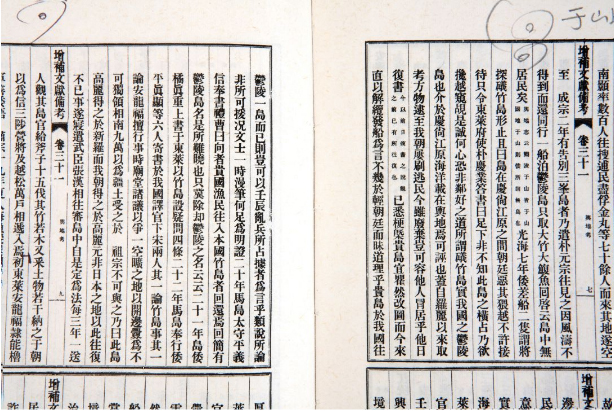 于山
南顯率數百人往搜逋民盡俘金丸等七十餘人而來其地遂空
增補文獻備考 卷三十一 輿地考 七
至 成宗二年有告別三峯島者乃遣朴元宗往見之因風濤不
得到而還同行一船泊鬱陵島只取大竹大鰒魚回啓云島中無
居民矣 輿地志云鬱陵于山皆于山國地于山則倭所謂松島也 光海七年倭差船二隻謂將
探礒竹島形止且曰島在慶尙江原之間朝廷惡其猥越不許接
待只令東萊府使朴慶業答書曰足下非不知此島之橫占乃欲
攙越窺覘是誠何心恐非鄰好之道所謂礒竹島實我國之鬱陵
島也介於慶尙江原海洋載在輿地焉可誣也蓋自羅麗以來取
考方物逮至我朝屢刷逃民今雖廢棄豈可容他人冒居乎他日
復書 已悉梗槩貴島宜瞿然改圖而今來
直以解纜發船爲言不幾於輕朝廷而昧道理乎貴島於我國往
增補文
鬱陵一島而已則豈可以壬辰亂兵所占據者爲言乎類說所論
非所可援况文士一時漫筆何足爲明證二十年馬島太守平義
信奉書禮曹曰向者貴國漁民往入本國竹島者回還焉回簡有
鬱陵島名是所難曉也只冀除却鬱陵之名云云二十一年倭
橘眞重上書于東萊以竹島設疑問四條二十二年馬島奉行倭
平眞顯等六人寄書於我國譯官卞宋兩人其一論竹島事其一
論安龍福擅行事時廟堂諸議以爭一空曠之地以開邊釁爲不
可獨領相南九萬以爲疆土受之於 祖宗不可與之乃曰此島
高麗得之於新羅而我朝得之於高麗元非日本之地以此往復
不已事遂寢遣武臣張漢相往審島中自是定爲法每三年一送
增補文獻備考 卷三十一 輿地考 九
人觀其島官給斧子十五伐其竹若木又采土物若干納之于朝
以爲信三陟營將及越松萬戶相遞入焉初東萊安龍福隷能櫓
增補文